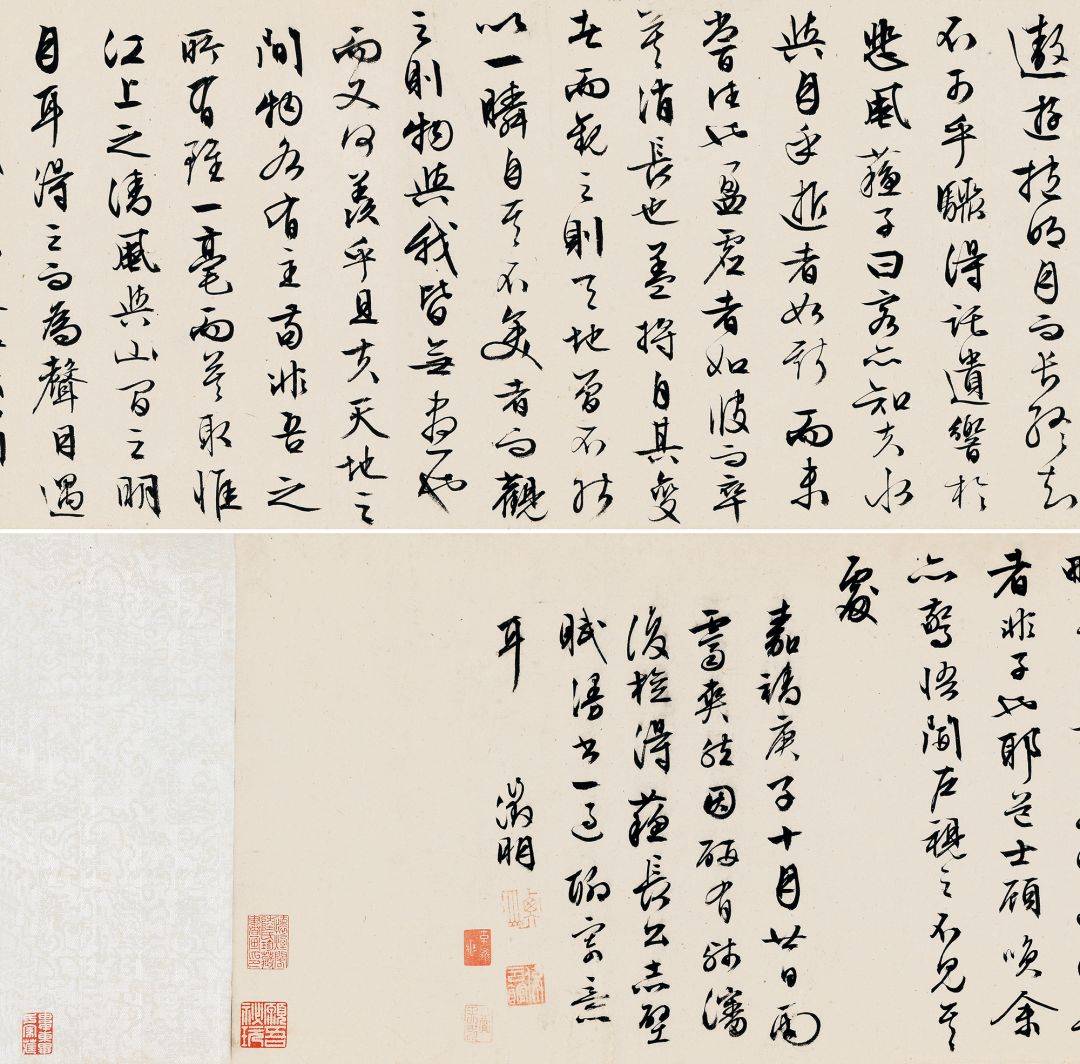 遨遊抱明月而長終知
不可乎驟得託遺響於
悲風蘇子曰客亦知夫水
與月乎逝者如斯而未
嘗往也盈虛者如彼而卒
莫消長也蓋將自其變
者而觀之則天地曾不能
以一瞬自其不變者而觀
之則物與我皆無盡也
而又何羨乎且夫天地之
間物各有主苟非吾之
所有雖一毫而莫取惟
江上之清風與山間之明
月耳得之而為聲目遇
者非子也耶道士顧咲余
亦驚悟開戶視之不見其
處
嘉靖庚子十月廿日雨
霽爽然因硯有餘瀋
復檢得蘇長公赤壁
賦漫書一過聊寄意
耳
徵明